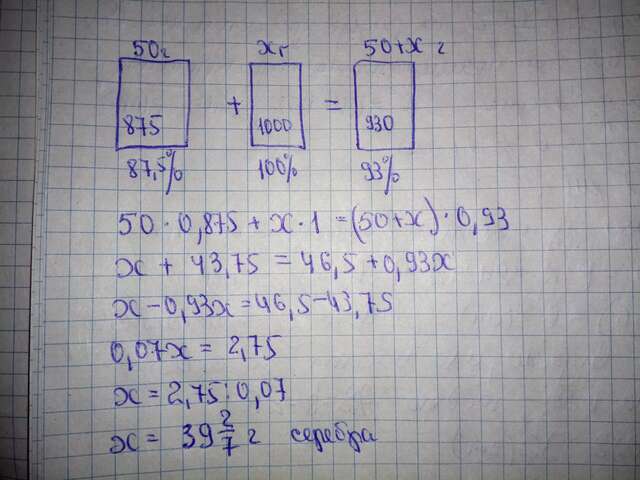 50г хг 50+х г
875 + 1000 = 930
87,5% 100% 93%
50 · 0,875 + х · 1 = (50+х) · 0,93
х + 43,75 = 46,5 + 0,93х
х - 0,93х = 46,5 - 43,75
0,07х = 2,75
х = 2,75 : 0,07
х = 39 2/7 г серебра